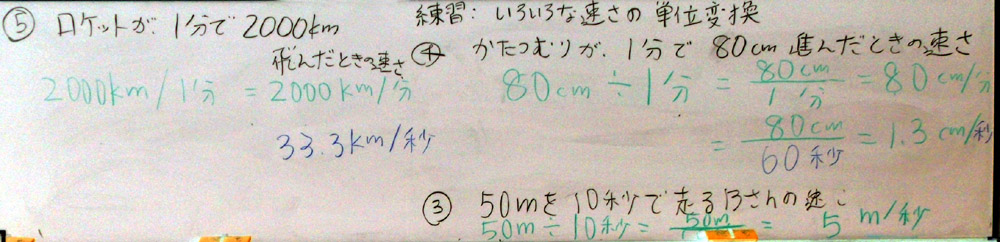 練習: いろいろな速さの単位変換
⑤ ロケットが 1分で 2000km
飛んだときの速さ
2000km/1分 = 2000km/分
33.3km/秒
④ かたつむりが、1分で 80cm 進んだときの速さ
80cm ÷ 1分 = 80cm / 1分 = 80cm/分
= 80cm / 60秒 = 1.3 cm/秒
③ 50mを10秒で走るBさんの速
50m÷10秒 = 50m = 5 m/秒